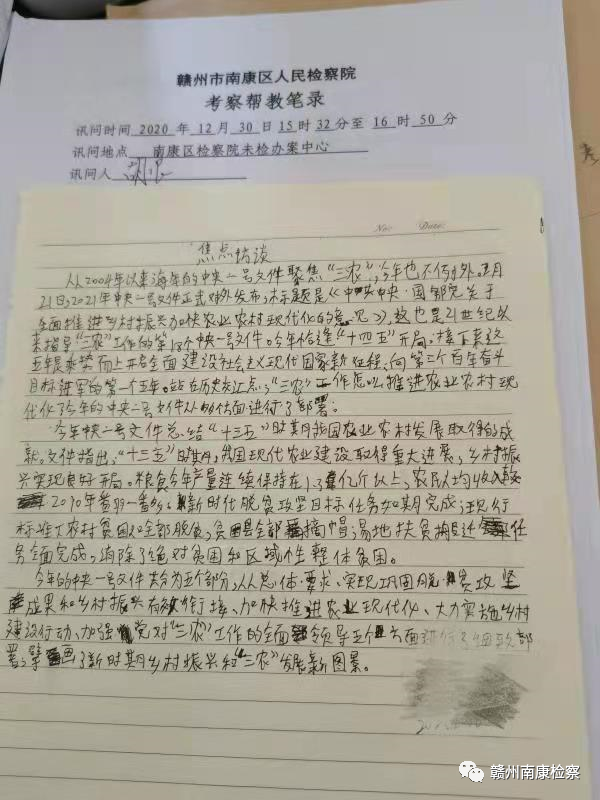 赣州市南康区人民检察院
考察帮教笔录
讯问时间 2020 年 12 月 30 日 15 时 32 分至 16 时 50 分
讯问地点 南康区检察院未检办案中心
讯问人
No: Date:
焦点访谈
从2004年以来每年的中央一号文件聚焦“三农”,今年也不例外。2月
21日,2021年中央一号文件正式对外发布,标题是《中共中央·国务院关于
全面推进乡村振兴加快农业农村现代化的意见》,这也是21世纪以
来指导“三农”工作的第18个中央一号文件。今年恰逢“十四五”开局,接下来这
五年是乘势而上开启全面建设社会主义现代国家新征程,向第二个百年奋斗
目标进军的第一个五年。站在历史交汇点,“三农”工作怎么推进农业农村现
代化了今年的中央一号文件从 方面进行了部署。
今年中央一号文件总结“十三五”时期我国农业农村发展取得的成
就。文件指出,“十三五”时期,我国现代农业建设取得重大进展,乡村振
兴实现良好开局。粮食今年产量连续保持在1.3亿斤以上,农民人均收入较
2010年翻一番多,新时代脱贫攻坚目标任务如期完成,现行
标准下农村贫困人口全部脱贫,贫困县全部摘帽,易地扶贫搬迁任
务全面完成,消除了绝对贫困和区域性整体贫困。
今年的中央一号文件共分为五个部分,从总体要求、实现巩固脱贫攻坚
成果和乡村振兴有效衔接、加快推进农业现代化、大力实施乡村
建设行动、加强党对“三农”工作的全面领导五个方面进行了细致部
署,擘画了新时期乡村振兴和“三农”发展新图景。
赣州南康检察